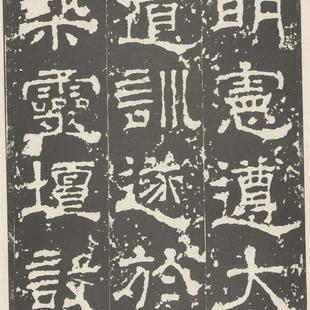 明憲遵大
道訓遂於
築靈壇設